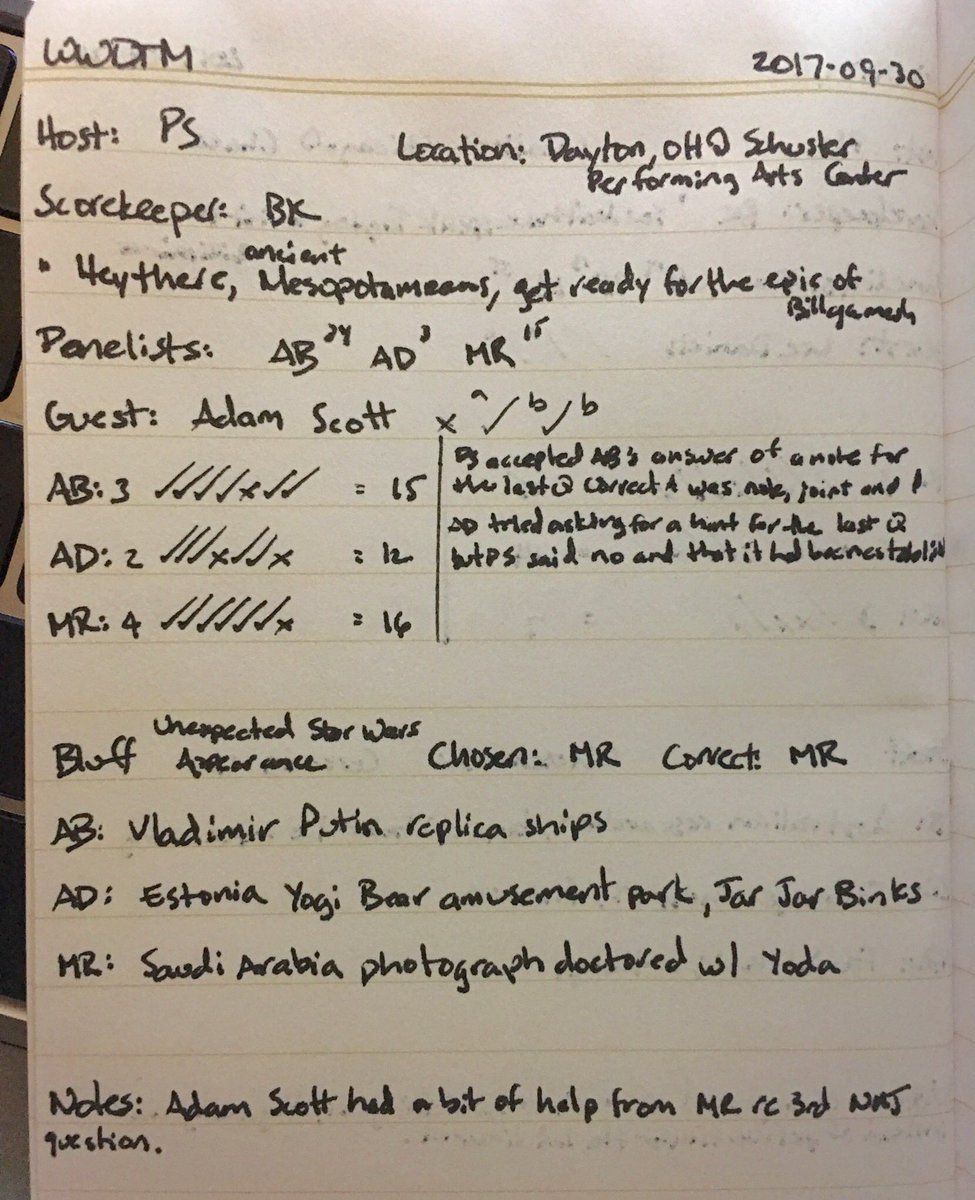 WWDTM 2017-09-30
Host: PS
Location: Dayton, OH @ Schuster
Performing Arts Center
Scorekeeper: BK
" Hey there, ancient Mesopotameans, get ready for the epic of
Billgamesh
Panelists: AB 24 AD 3 MR 15
Guest: Adam Scott x a ✓ b ✓ b
AB: 3 ✓✓✓✓x✓✓ = 15
AD: 2 ✓✓✓x✓✓x = 12
MR: 4 ✓✓✓✓✓✓x = 16
PS accepted AB's answer of a note for
the last Q correct A was note, joint and
AD tried asking for a hint for the last Q
but PS said no and that it had been
Bluff Unexpected Star Wars
Appearance Chosen: MR Correct: MR
AB: Vladimir Putin replica ships
AD: Estonia Yogi Bear amusement park, Jar Jar Binks
MR: Saudi Arabia photograph doctored w/ Yoda
Notes: Adam Scott had a bit of help from MR re 3rd NMJ
question.